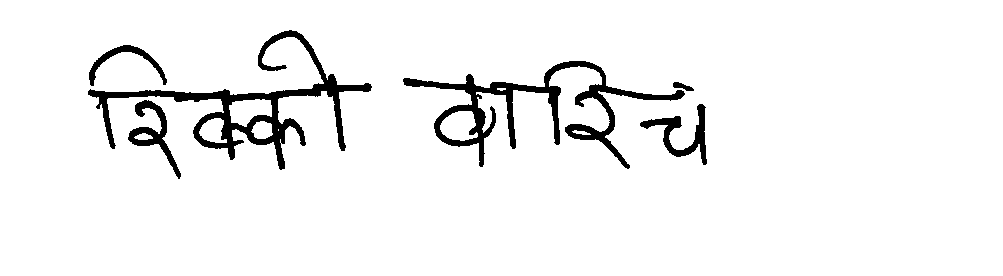 रिक्की कारिच